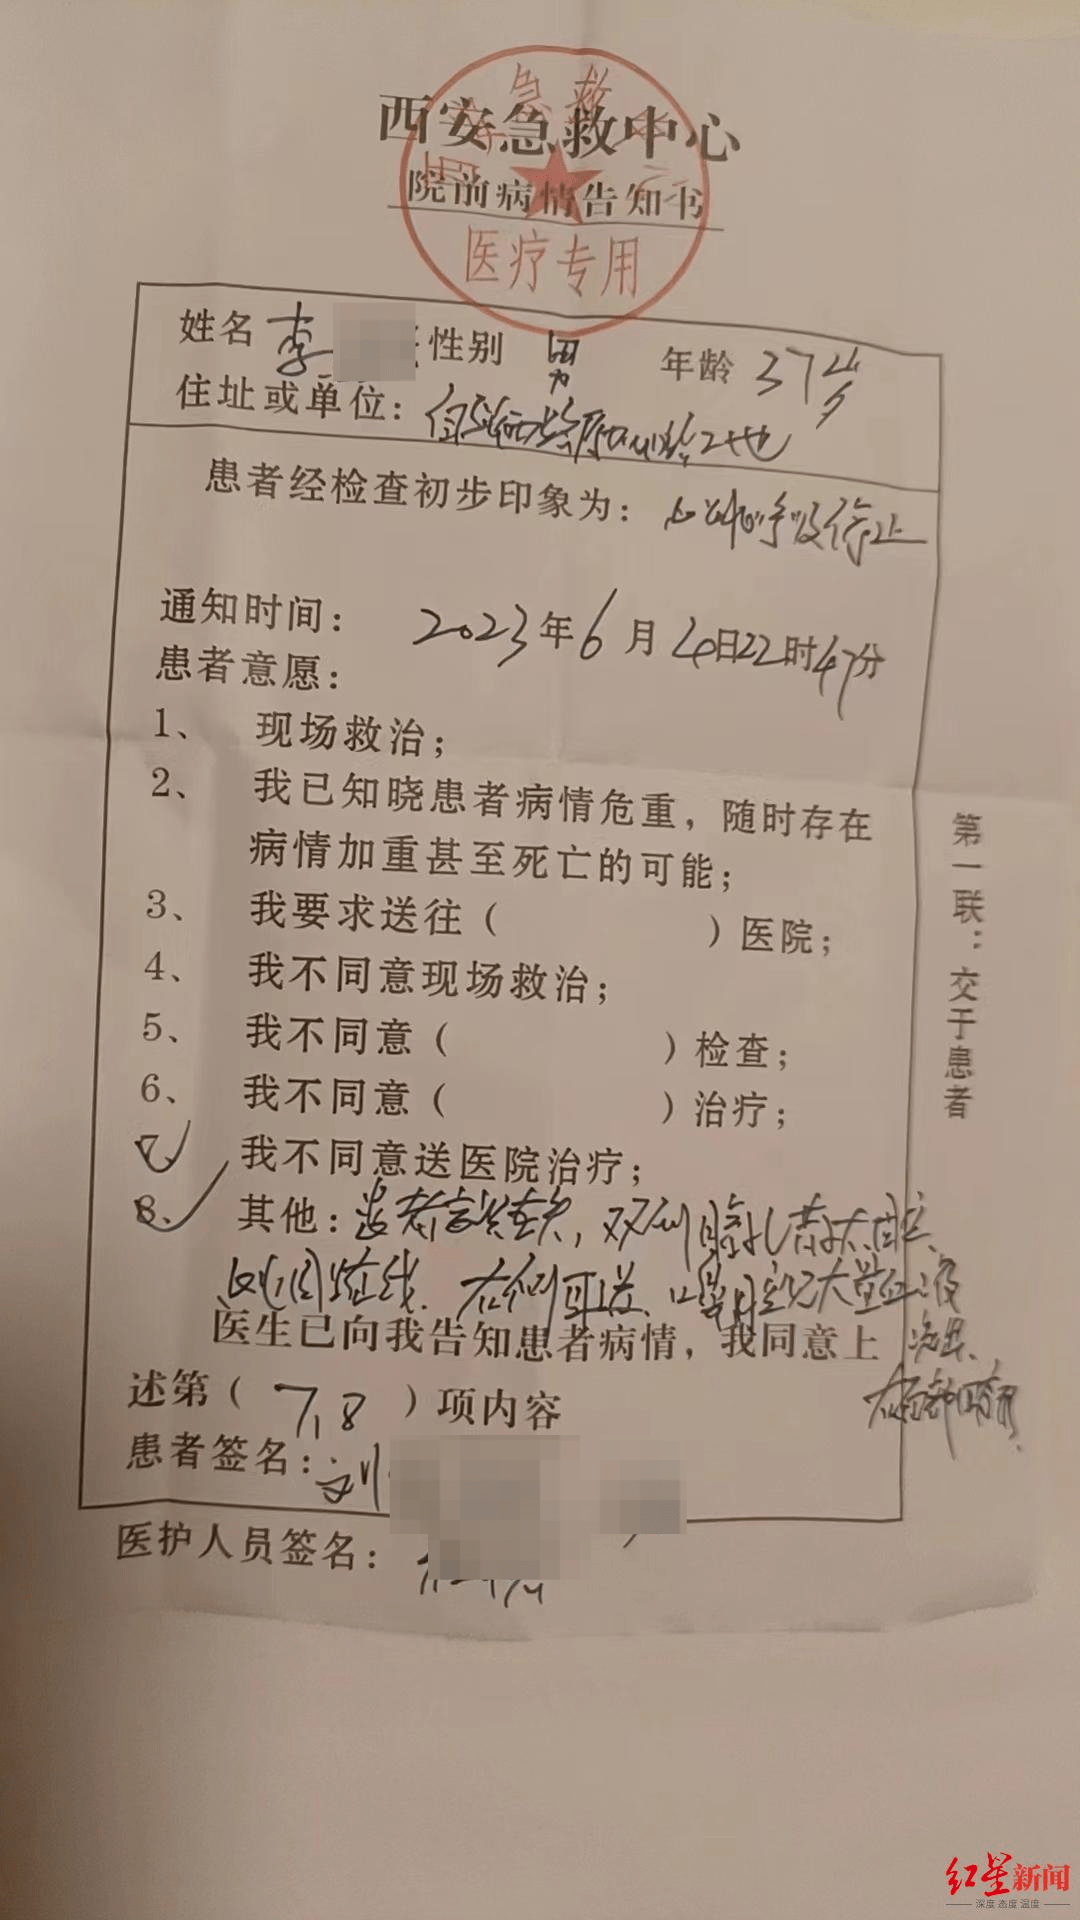 西安急救中心
院前病情告知书
急救
医疗专用
姓名 李 性别 男 年龄 37岁
住址或单位: 工地
患者经检查初步印象为: 心跳呼吸停止
通知时间: 2023年6月4日22时47分
患者意愿:
1、 现场救治;
2、 我已知晓患者病情危重，随时存在
病情加重甚至死亡的可能;
3、 我要求送往( )医院;
4、 我不同意现场救治;
5、 我不同意( )检查;
6、 我不同意( )治疗;
7、 我不同意送医院治疗;
8、 其他: 患者意识丧失，双侧瞳孔散大固定、
右侧耳道、口鼻腔见大量血液
流出、
医生已向我告知患者病情，我同意上
述第( 7、8 )项内容
患者签名: 刘
医护人员签名:
第一联：交于患者
红星新闻
深度 态度 温度